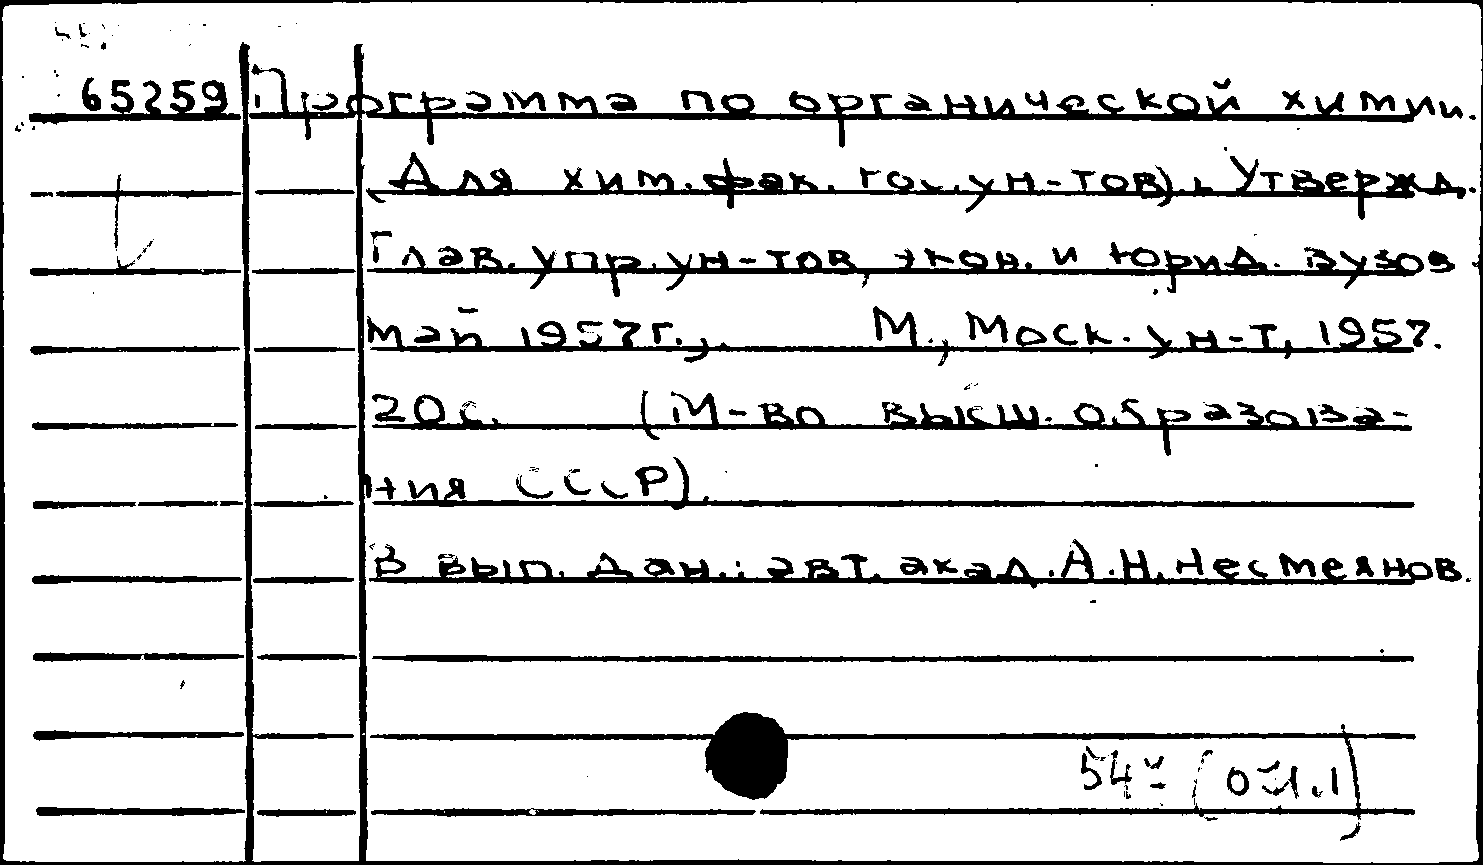 65259 Программа по органической химии.
(Для хим. фак. гос. ун-тов). Утвержд.
Глав. упр. ун-тов, экон. и юрид. вузов
май 1957г.,. М., Моск. ун-т, 1957.
20с. (М-во высш. образова-
ния СССР).
В вып. дан.: авт. акад. А.Н. Несмеянов.